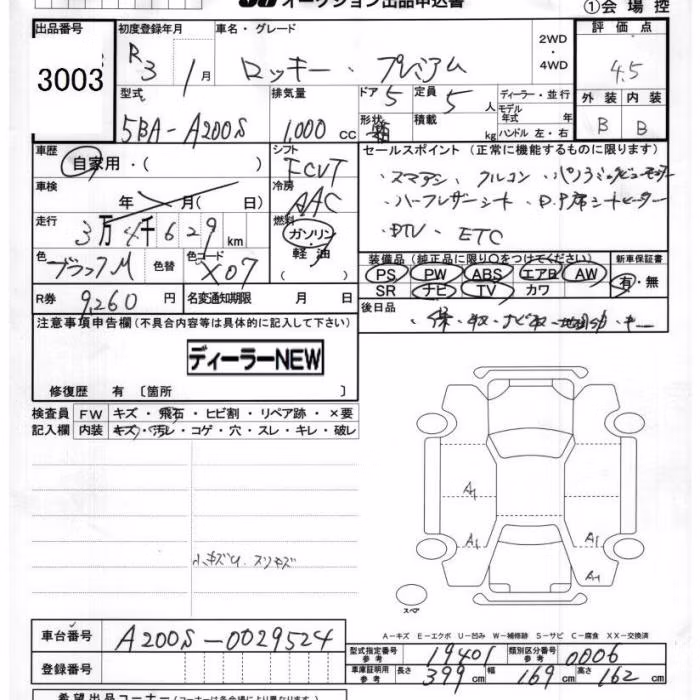 オークション出品申込書
①会場控
出品番号 3003
初度登録年月 R3 1月
車名・グレード ロッキー・プレミアム
2WD・4WD
評価点 4.5
型式 5BA-A200S
排気量 1,000 cc
ドア 5
定員 5 人
形状 箱
積載 kg
ディーラー・並行
モデル年式 年式
ハンドル 左・右
外装 B
内装 B
車歴 自家用・( )
シフト FCVT
セールスポイント (正常に機能するものに限ります)
車検 年 月( 日)
冷房 AAC
・スマアシ ・クルコン
・ハーフレザーシート
・DTV ・ETC
走行 3万4千629km
燃料 ガソリン・軽油( )
色 ブラックM 色替
色コード X07
装備品 (純正品に限り○をつけてください)
新車保証書
PS PW ABS エアB AW
SR ナビ TV カワ
有・無
R券 9,260円
名変通知期限 月 日
後日品
注意事項申告欄(不具合内容等は具体的に記入して下さい)
ディーラーNEW
修復歴 有 〔箇所 〕
検査員記入欄 FW キズ・飛石・ヒビ割・リペア跡・×要
内装 キズ・汚レ・コゲ・穴・スレ・キレ・破レ
A1
A1 A1
A1
小キズU.スリキズ
スペア
車台番号 A200S-0029524
A-キズ E-エクボ U-凹み W-補修跡 S-サビ C-腐食 XX-交換済
型式指定番号 参考 19401
類別区分番号 参考 0006
登録番号
車庫証明用 参考 長さ 399cm 幅 169cm 高さ 162cm
希望出品コーナー(コーナーは各会場により異なります)